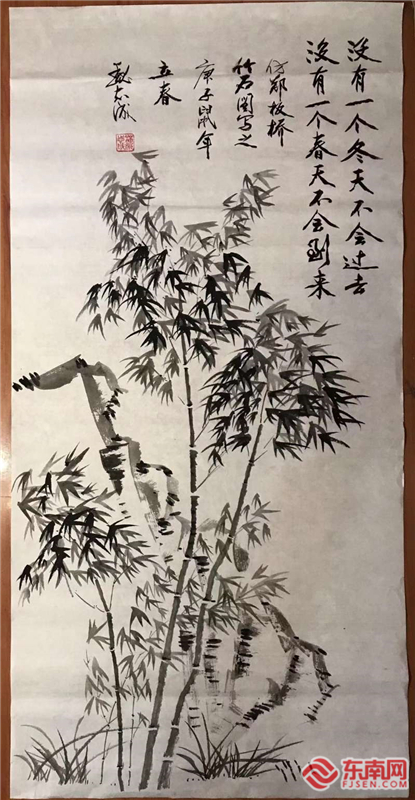 没有一个冬天不会过去
没有一个春天不会到来
仿郑板桥
竹石图写之
庚子鼠年
立春
东南网
FJSEN.COM